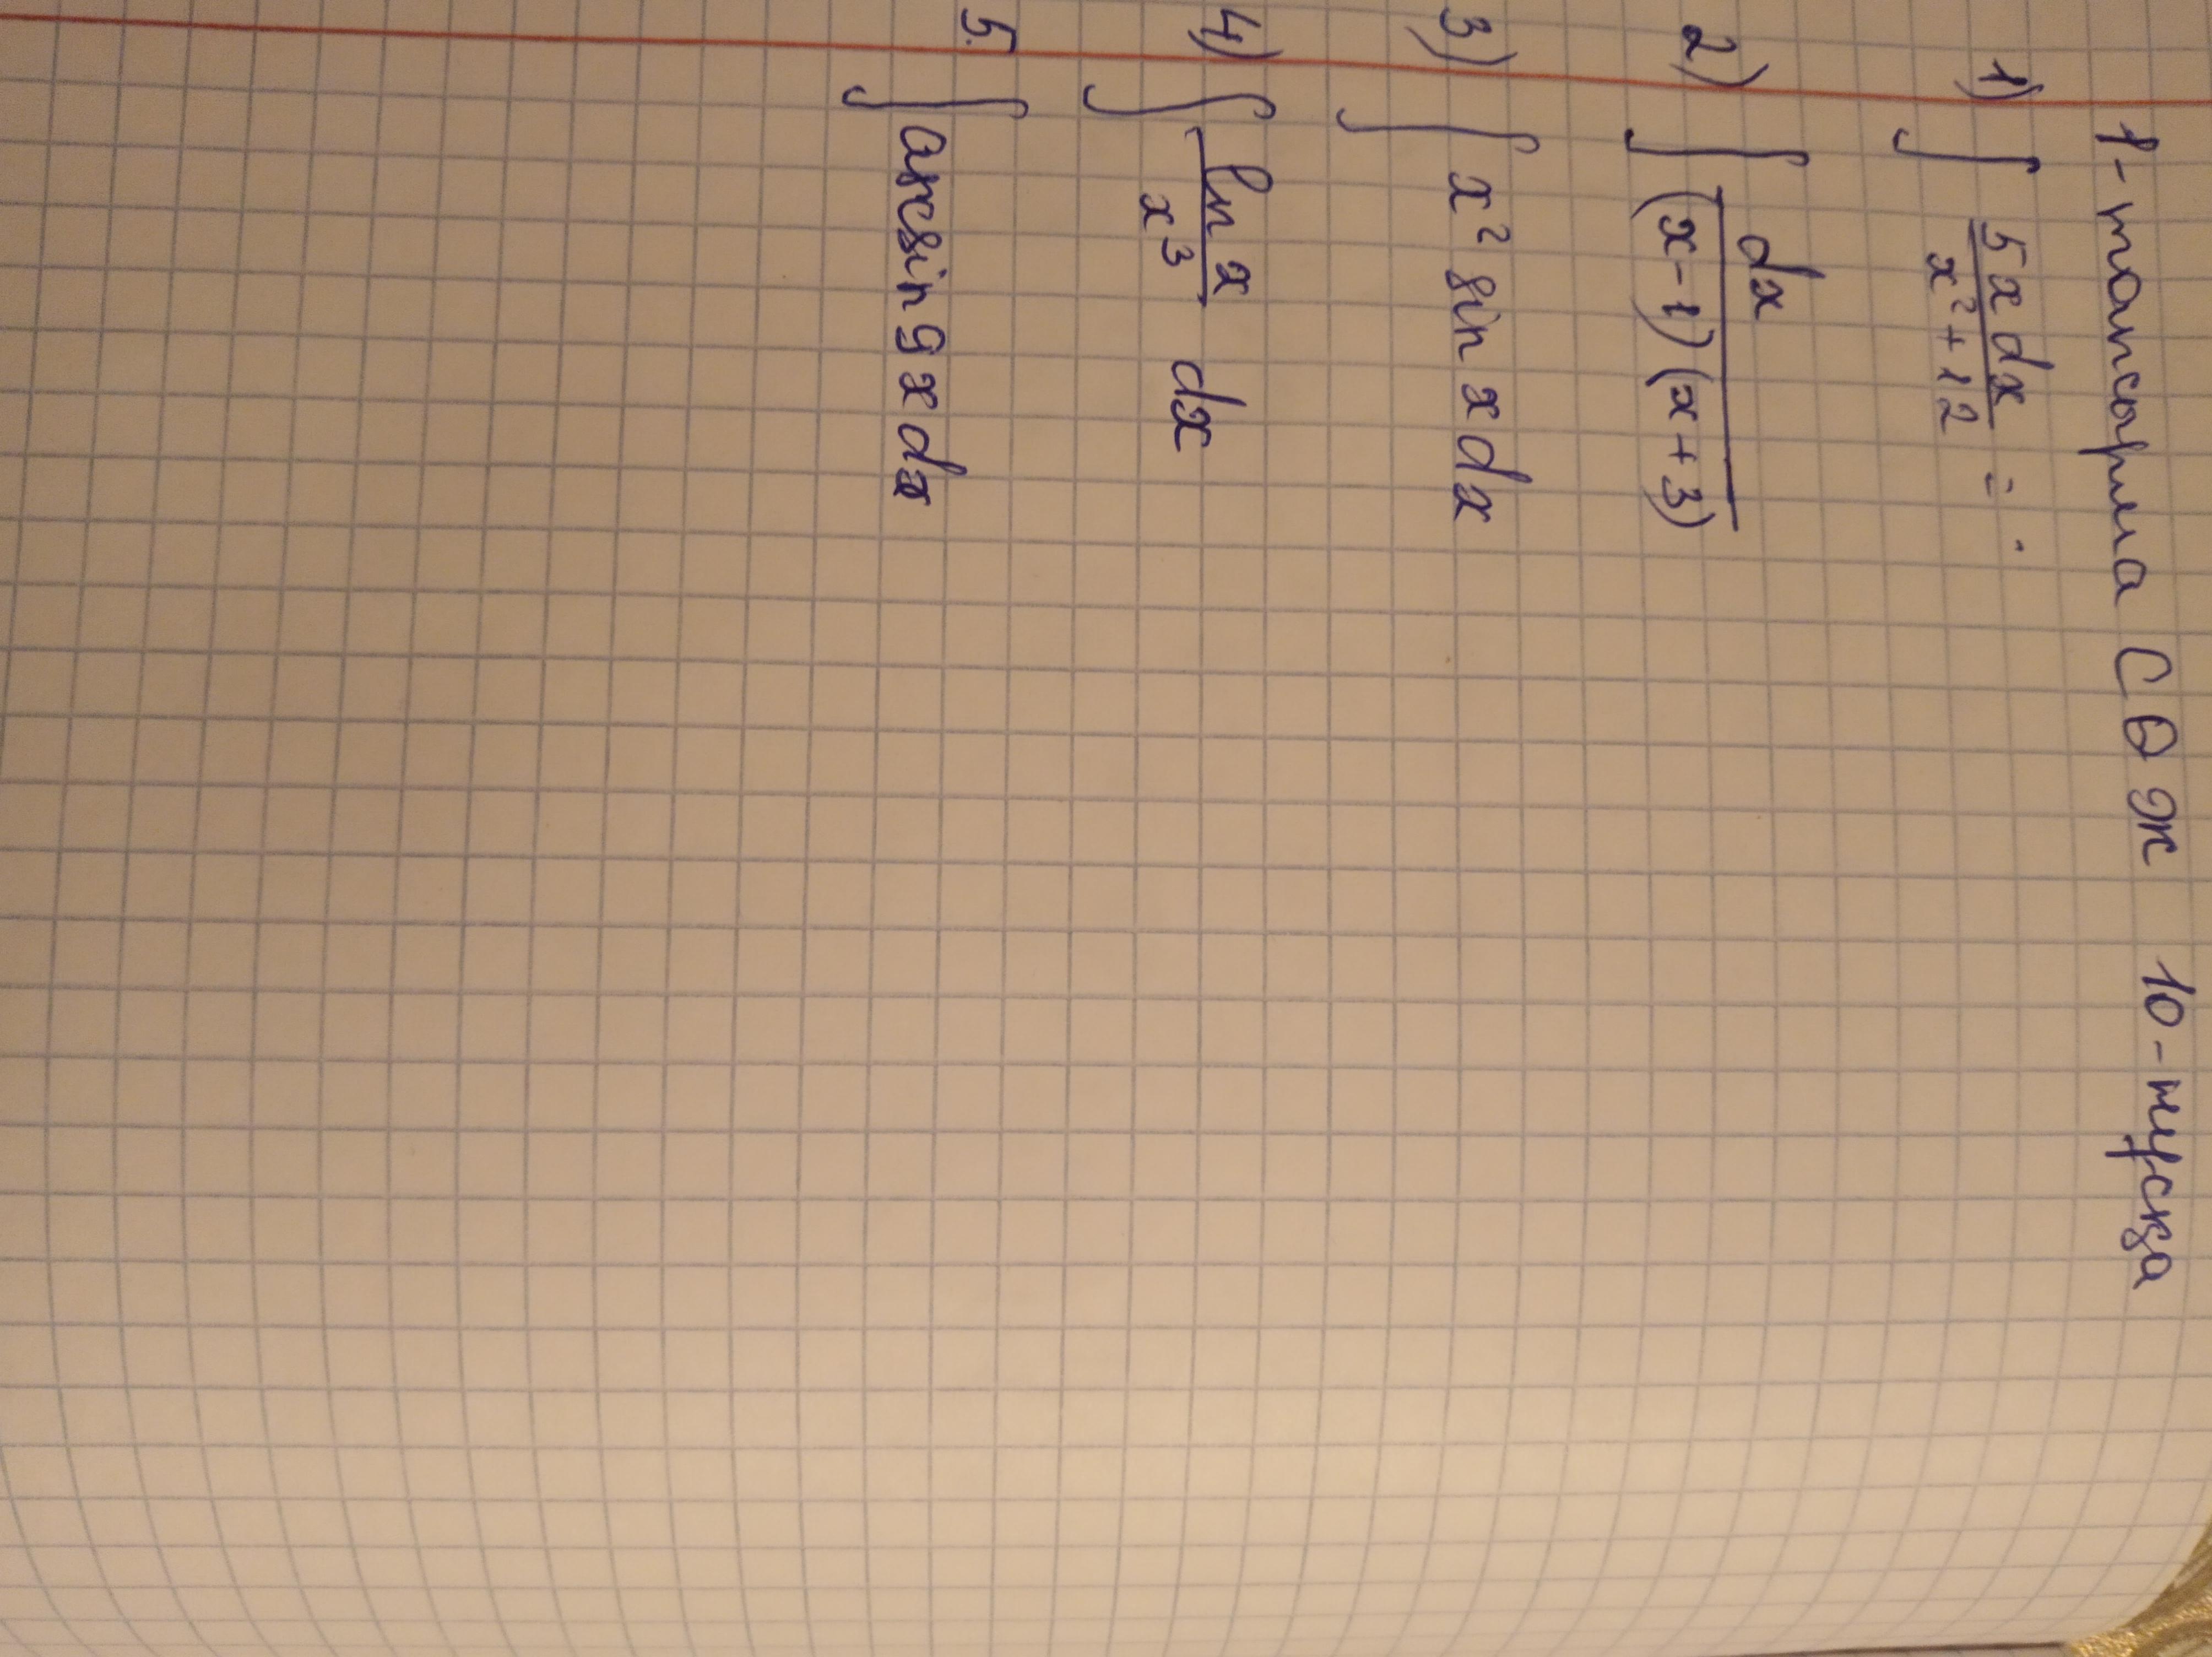 1-тапсырма СӨЖ 10-нұсқа
1) ∫ 5xdx / x² + 12 = .
2) ∫ dx / (x-1)(x+3)
3) ∫ x² sin x dx
4) ∫ ln x / x³ dx
5. ∫ arcsin 9 x dx